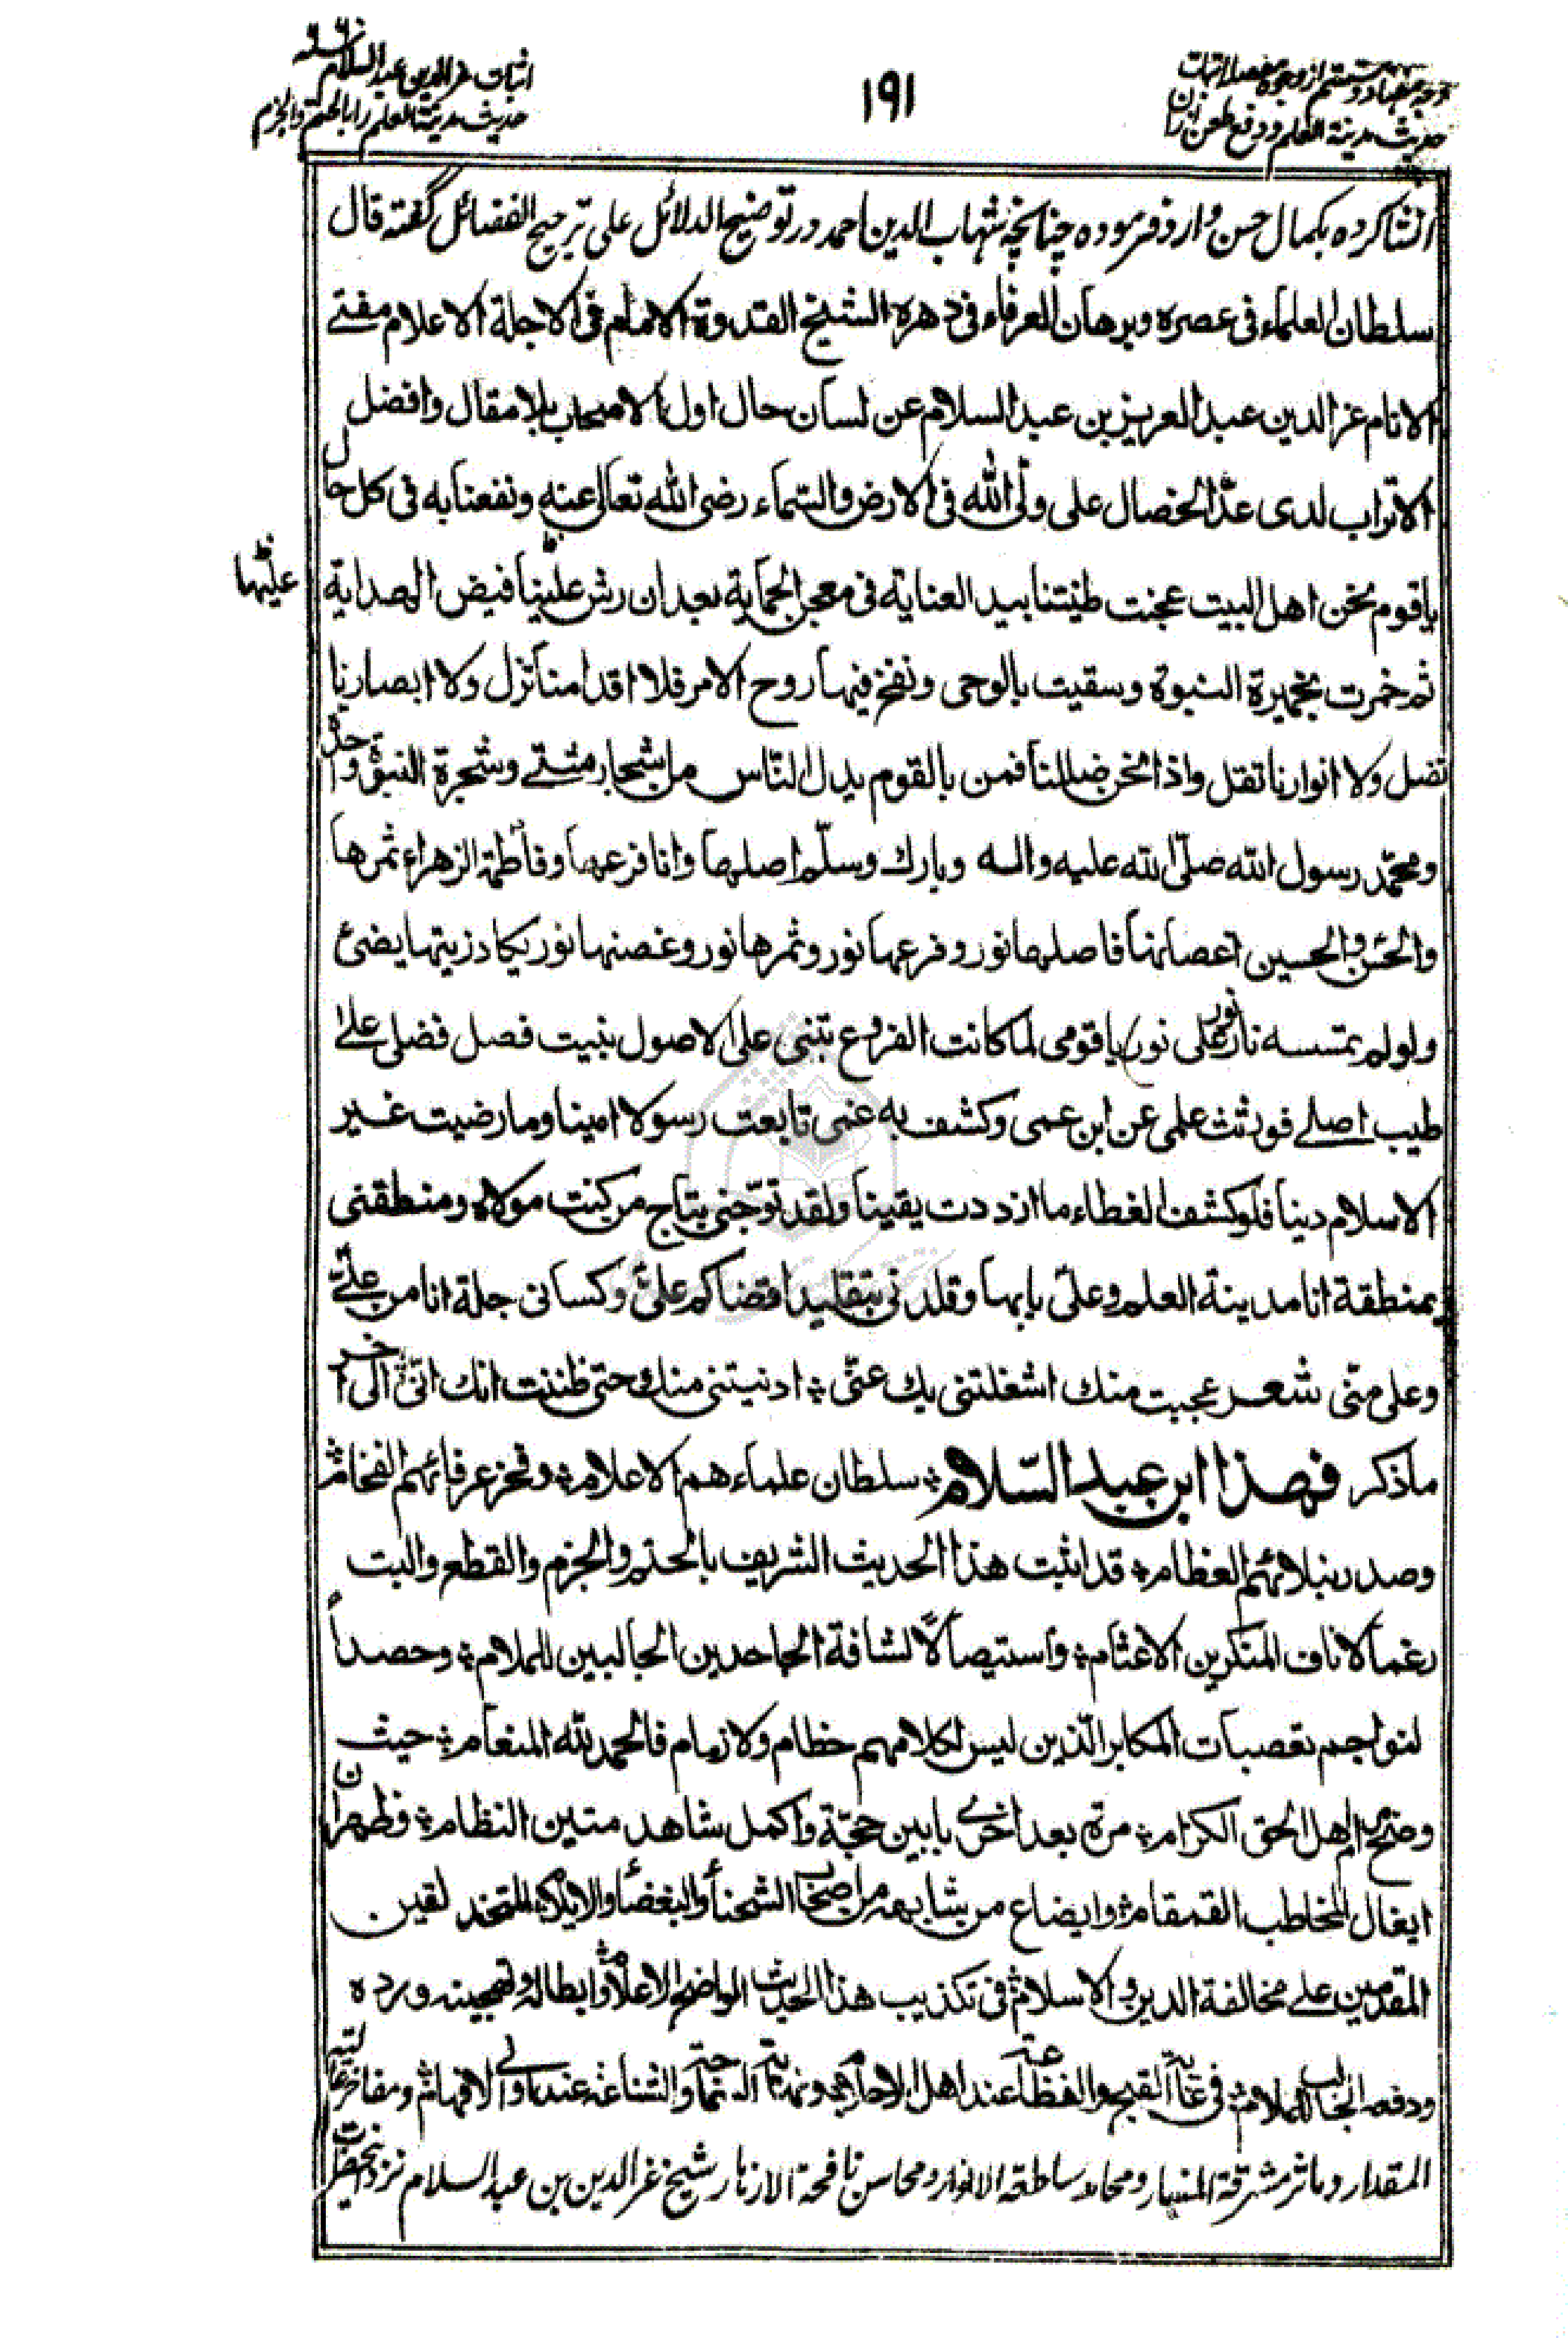 وجه هفتاد و هشتم از وجوه مفصله اثبات
حدیث مدینة العلم و دفع طعن از آن
۱۹۱
اثبات عزالدین عبدالسلام
حدیث مدینة العلم را بالحتم والجزم
انشا کرده بکمال حسن وارد فرموده چنانچه شهاب الدین احمد در توضیح الدلائل علی ترجیح الفضائل گفته قال
سلطان العلماء فی عصره وبرهان العرفاء فی دهره الشیخ القدوة الامام فی الاجلة الاعلام مفتے
الانام عز الدین عبد العزیز بن عبد السلام عن لسان حال اول الاصحاب بلا مقال وافضل
الاتراب لدی عدّ الخصال علی ولیّ الله فی الارض والسّماء رضی الله تعالی عنه ونفعنا به فی کل حال
یا قوم نحن اهل البیت عجنت طینتنا بید العنایة فی معجن الحمایة بعد ان رش علینا فیض الهدایة
علیها
ثم خمرت بخمیرة النبوة وسقیت بالوحی ونفخ فیها روح الامر فلا اقدامنا تزل ولا ابصارنا
تضل ولا انوارنا تقل واذا نحن ضللنا فمن بالقوم یدل الناس من اشجار شتے وشجرة النبوة واحدة
ومحمّد رسول الله صلّی الله علیه واله وبارك وسلّم اصلها وانا فرعها وفاطمة الزهراء ثمرها
والحسن والحسین اغصانها فاصلها نور وفرعها نور وثمرها نور وغصنها نور یکاد زیتها یضئ
ولو لم تمسسه نار نور علی نور یا قومی لما کانت الفروع تبنی علی الاصول بنیت فصل فضلی علے
طیب اصلے فورثت علمی عن ابن عمی وکشف به غمی تابعت رسولا امینا وما رضیت غیر
الاسلام دینا فلو کشف الغطاء ما ازددت یقینا ولقد توّجنی بتاج من کنت مولاه ومنطقنی
بمنطقة انا مدینة العلم وعلیّ بابها وقلدنی بتقلید اقضاکم علیّ وکسانی حلة انا من علیّ
وعلی منّی شعر عجبت منك اشغلتنی بك عنّی ؞ ادنیتنی منك حتی ظننت انك انّی ؞ الی اخر
ما ذکر فهذا ابن عبد السّلام ؞ سلطان علماءهم الاعلام ؞ وفخر عرفائهم الفخام ؞
وصدر نبلائهم العظام ؞ قد اثبت هذا الحدیث الشریف بالحتم والجزم والقطع والبت
رغماً لاناف المنکرین الاغثام ؞ واستیصالاً لشافة الجاحدین الجالبین للملام ؞ وحصداً
لنواجم تعصبات المکابر الّذین لیس لکلامهم خطام ولا زمام فالحمد لله المنعام ؞ حیث
وضح لاهل الحق الکرام ؞ مرة بعد اخرے بابین حجّة واکمل شاهد متین النظام ؞ وظهر ان
ایغال المخاطب القمقام ؞ وایضاع من یشابهه من اصحاب الشحنأ والبغضأ والایلام للمتحذلقین
المقدمین علے مخالفة الدین والاسلام ؞ فی تکذیب هذا الحدیث الواضح الاعلام ؞ وابطاله وتهجینه ورده
ودفعه الجالب للملام ؞ فی غایة القبح والفظاعة عند اهل الاحلام ؞ ونهایة السماجة والشناعة عند اولی الافهام ؞ ومفاخر عالیة
المقدار وماثر مشرقة المنار ومحامد ساطعة الانوار ومحاسن نافحة الازهار شیخ عزالدین بن عبدالسلام نزد حضرات